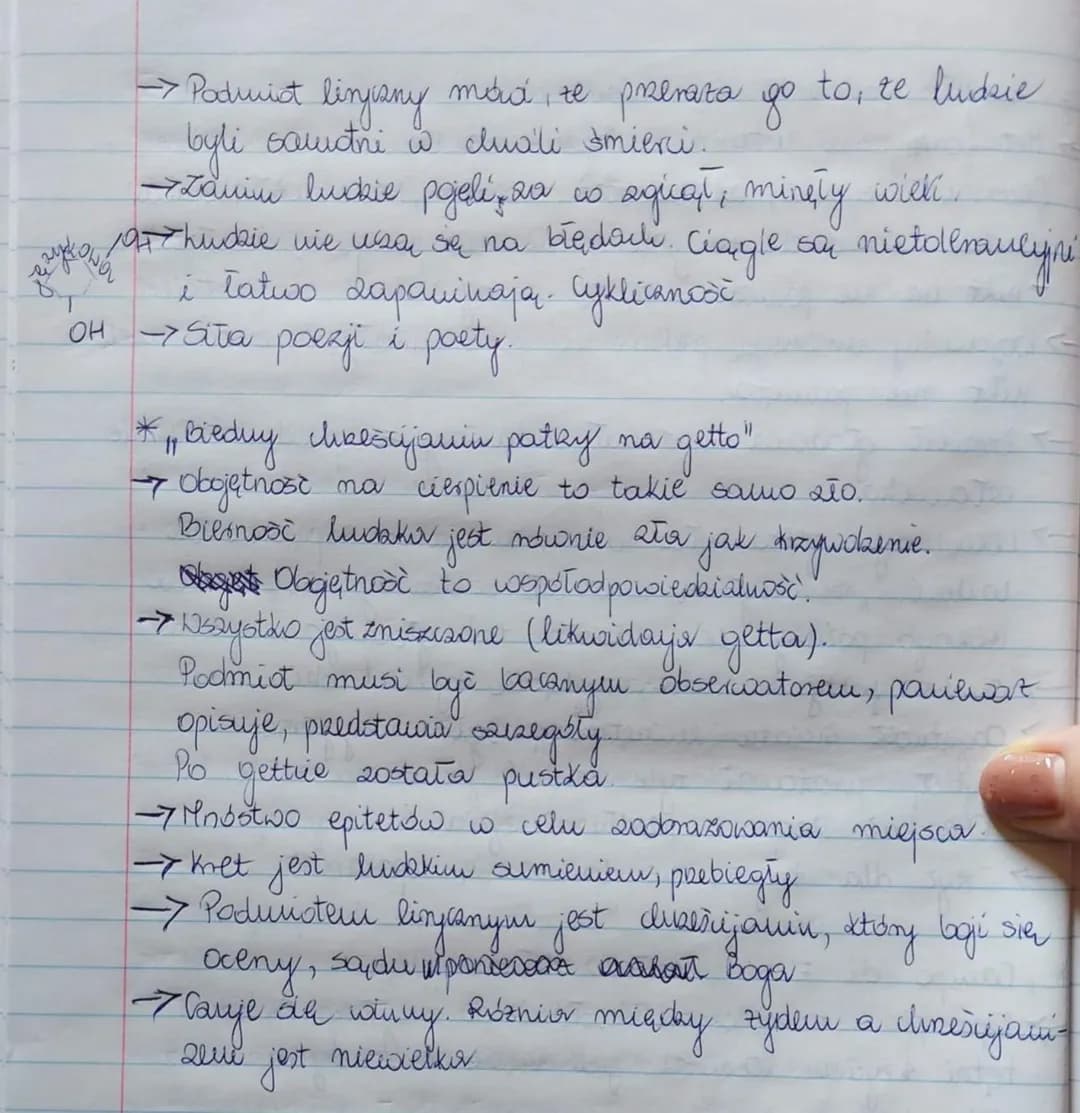 → Podmiot liryczny mówi, że przeraża go to, że ludzie
byli samotni w chwili śmierci.
→ Zanim ludzie pojęli, za co zginął, minęły wieki.
→ Ludzie nie uczą się na błędach. Ciągle są nietolerancyjni
i łatwo zapominają. Cykliczność
OH → Siła poezji i poety.
* „Biedny chrześcijanin patrzy na getto"
→ Obojętność na cierpienie to takie samo zło.
Bierność ludzka jest równie zła jak krzywdzenie.
Obojętność to współodpowiedzialność.
→ Wszystko jest zniszczone (likwidacja getta).
Podmiot musi być bacznym obserwatorem, ponieważ
opisuje, przedstawia szczegóły.
Po gettcie została pustka.
→ Mnóstwo epitetów w celu zobrazowania miejsca.
→ Kret jest ludzkim sumieniem, przebiegły
→ Podmiotem lirycznym jest chrześcijanin, który boji się
oceny, sądu Boga
→ Czuje się winny. Różnica między żydem a chrześcijani-
zem jest niewielka